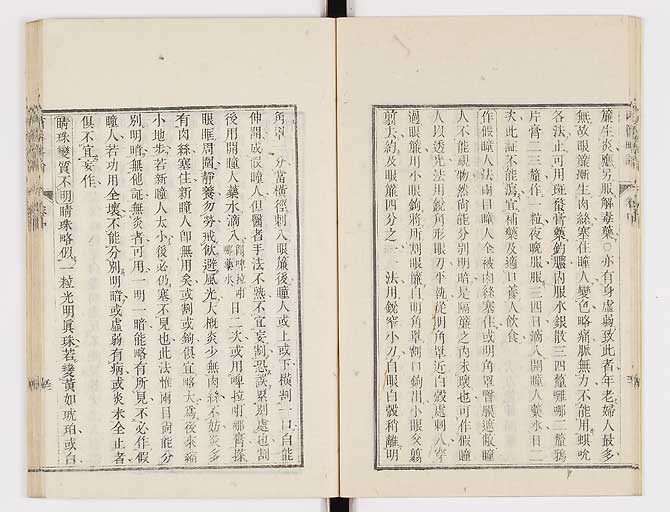 簾生炎應另服解毒藥○亦有身虛弱致此者年老婦人最多
無故眼簾漸生肉絲塞住瞳人變色略痛脈無力不能用蜞吮
各法止可用斑蝥膏藥釣膿內服水銀散三四釐嚹哪二釐鴉
片膏二三釐作一粒夜晚服服三四日滴入開瞳人藥水日二
次此証不能瀉宜補藥及適口養人飲食
作假瞳人法兩目瞳人全被肉絲塞住或明角罩醫膜遮蔽瞳
人不能視物然尚能分別明暗是隔簾之內未壞也可作假瞳
人以透光法用銳角形眼刀平執從明角罩近白殼處刺入穿
過眼簾用小眼鉤將所割眼簾自明角罩割口鉤出小眼交剪
剪去約及眼簾四分之一 法用銳窄小刀自眼白殼稍離明
角罩一分當橫徑刺入眼簾後瞳人或上或下橫割一口自能
伸開成假瞳人但醫者手法不熟不宜妄割恐誤累別處也割
後用開瞳人藥水滴入 日二次或用啤拉唎哪膏搽
眼眶周圍靜養勿勞戒飲避風光大概炎少無肉絲不妨炎多
有肉絲塞住新瞳人卽無用矣或割或鉤俱宜略大爲後來縮
小地步若新瞳人太小後必仍塞不見也此法惟兩目尚能分
別明暗無他証無炎者可用一明一暗能略有所見不必作假
瞳人若功用全壞不能分別明暗或虛弱有病或炎未全止者
俱不宜妄作
睛珠變質不明睛珠略似一粒光明眞珠若變黃如琥珀或白